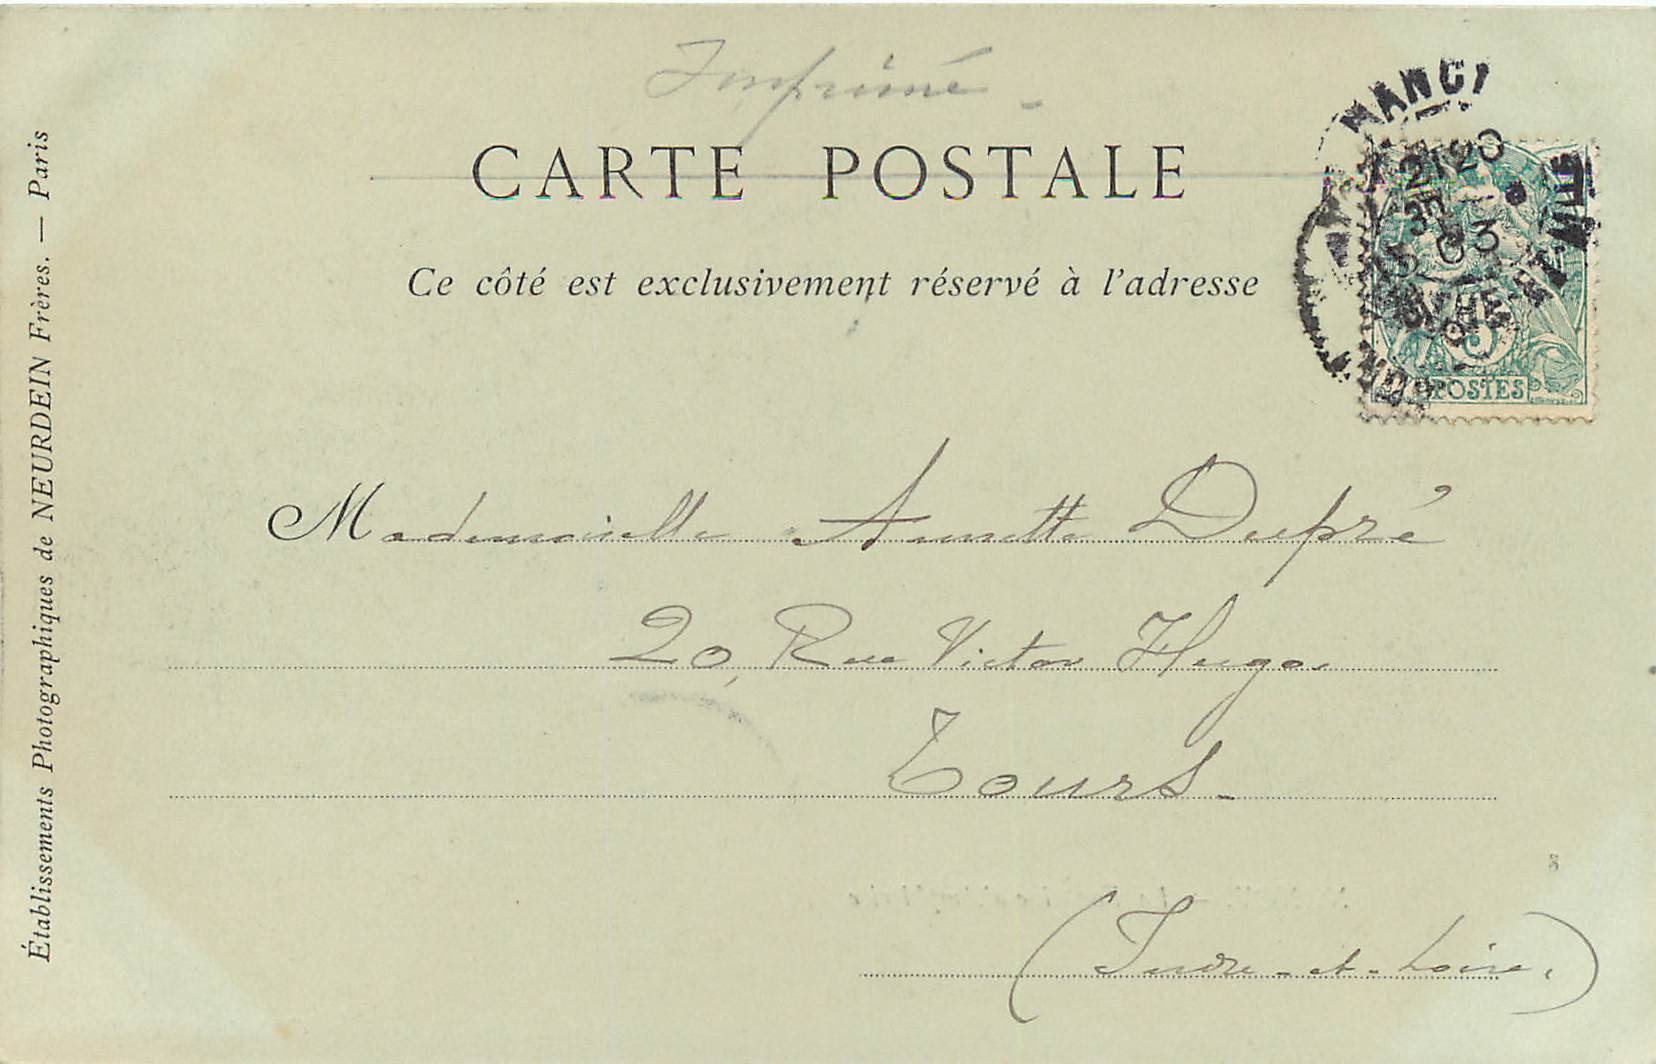 Imprimé -
CARTE POSTALE
Ce côté est exclusivement réservé à l'adresse
NANCY
03
5
POSTES
Mademoiselle Annette Dupré
20, Rue Victor Hugo.
Tours -
(Indre-et-Loire,)
Établissements Photographiques de NEURDEIN Frères. — Paris